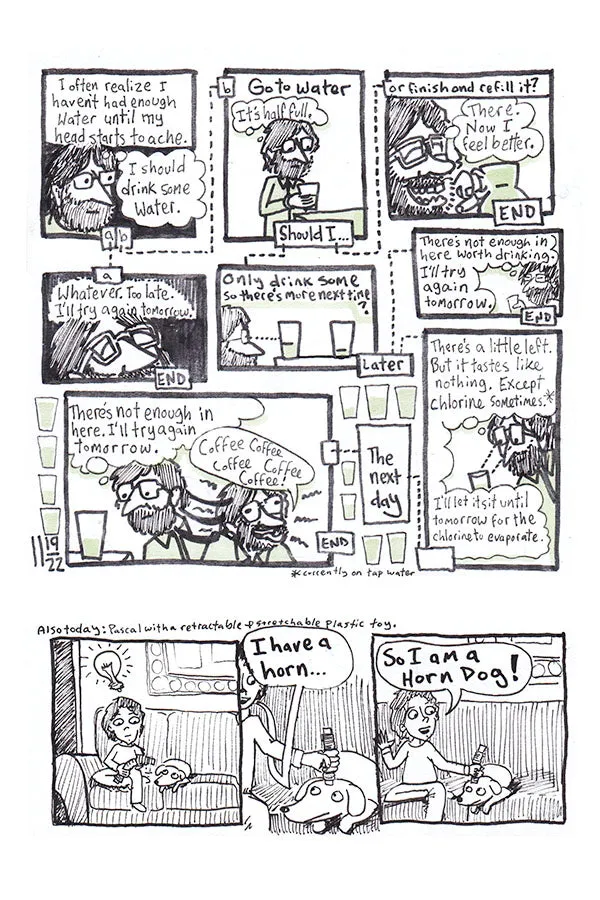 I often realize I
haven't had enough
Water until my
head starts to ache.
I should
drink some
Water.
a/b
b
Go to Water
It's half full.
Should I...
or finish and refill it?
There.
Now I
feel better.
END
a
Whatever. Too late.
I'll try again tomorrow.
END
Only drink some
so there's more next time
?
Later
There's not enough in
here worth drinking.
I'll try
again
tomorrow.
END
There's a little left.
But it tastes like
nothing. Except
chlorine sometimes.*
I'll let it sit until
tomorrow for the
chlorine to evaporate.
The
next
day
There's not enough in
here. I'll try again
tomorrow.
Coffee Coffee
Coffee Coffee
Coffee!
END
11/19/22
*currently on tap water
Also today: Pascal with a retractable & stretchable plastic toy.
I have a
horn...
So I am a
Horn Dog!